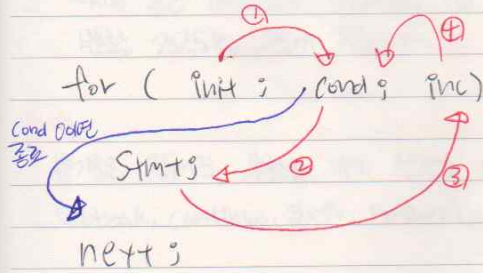 ① ④
for ( init ; cond ; inc)
cond 0이면
종료
stmt ; ② ③
next ;